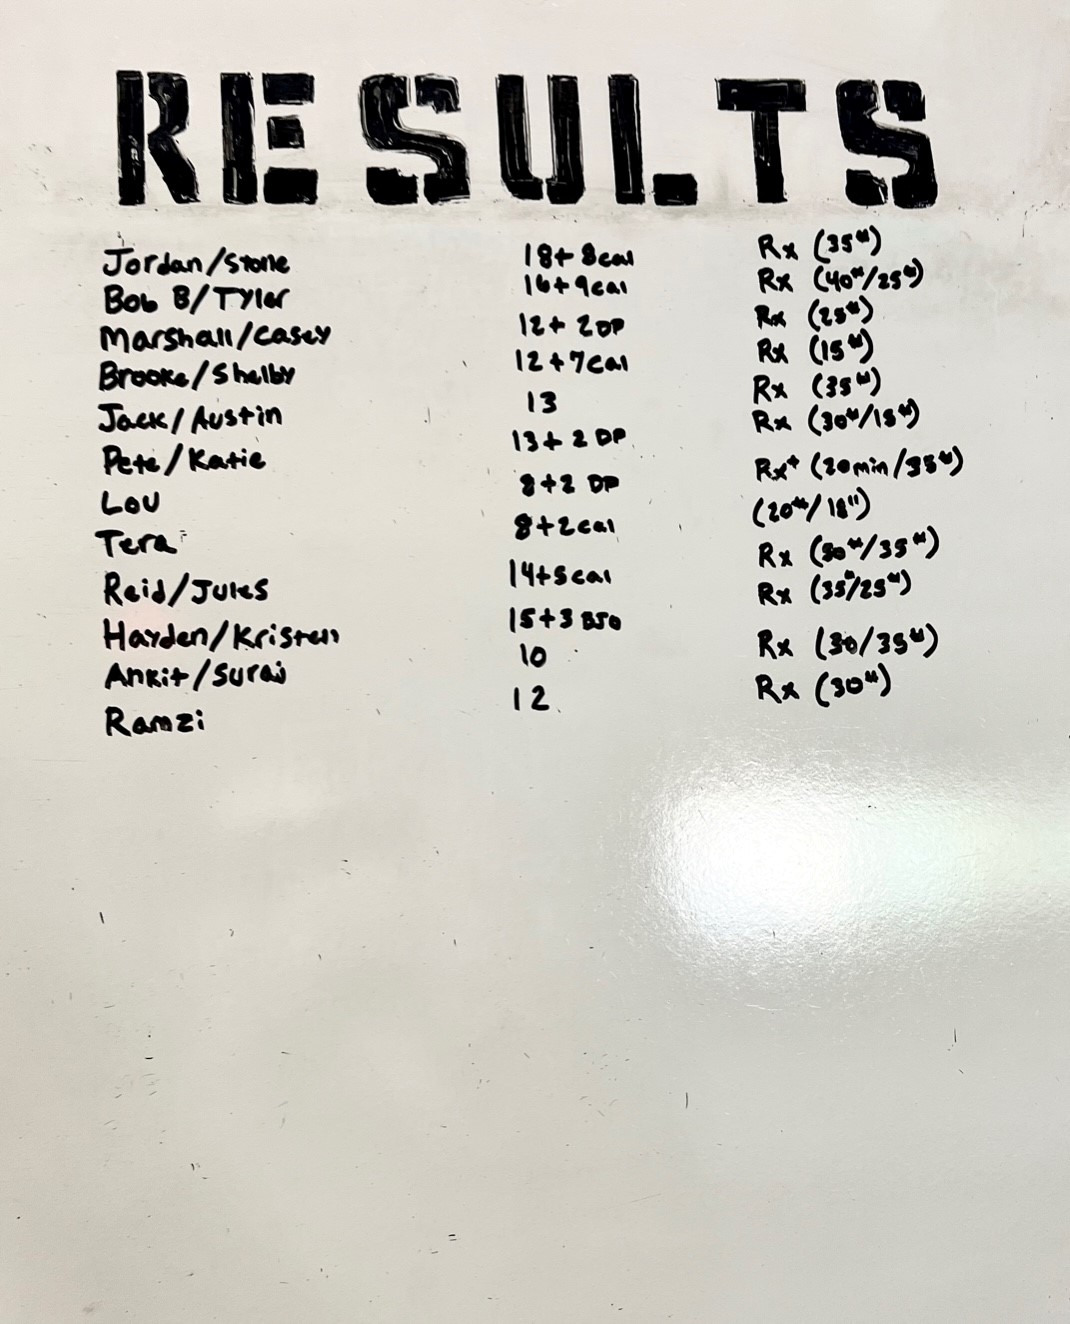 RESULTS
Jordan/Stone 18+ 8cal Rx (35#)
Bob B/Tyler 16+9cal Rx (40#/25#)
Marshall/Casey 12+ 2DP Rx (25#)
Brooke/Shelby 12+7cal Rx (15#)
Jack/Austin 13 Rx (35#)
Pete/Katie 13+ 2 DP Rx (30#/15#)
Lou 8+2 DP Rx+ (20min/35#)
Tera 8+2cal (20#/18")
Reid/Jules 14+5cal Rx (50#/35#)
Hayden/Kristen 15+3 BJO Rx (35#/25#)
Ankit/Suraj 10 Rx (30/35#)
Ramzi 12 Rx (30#)